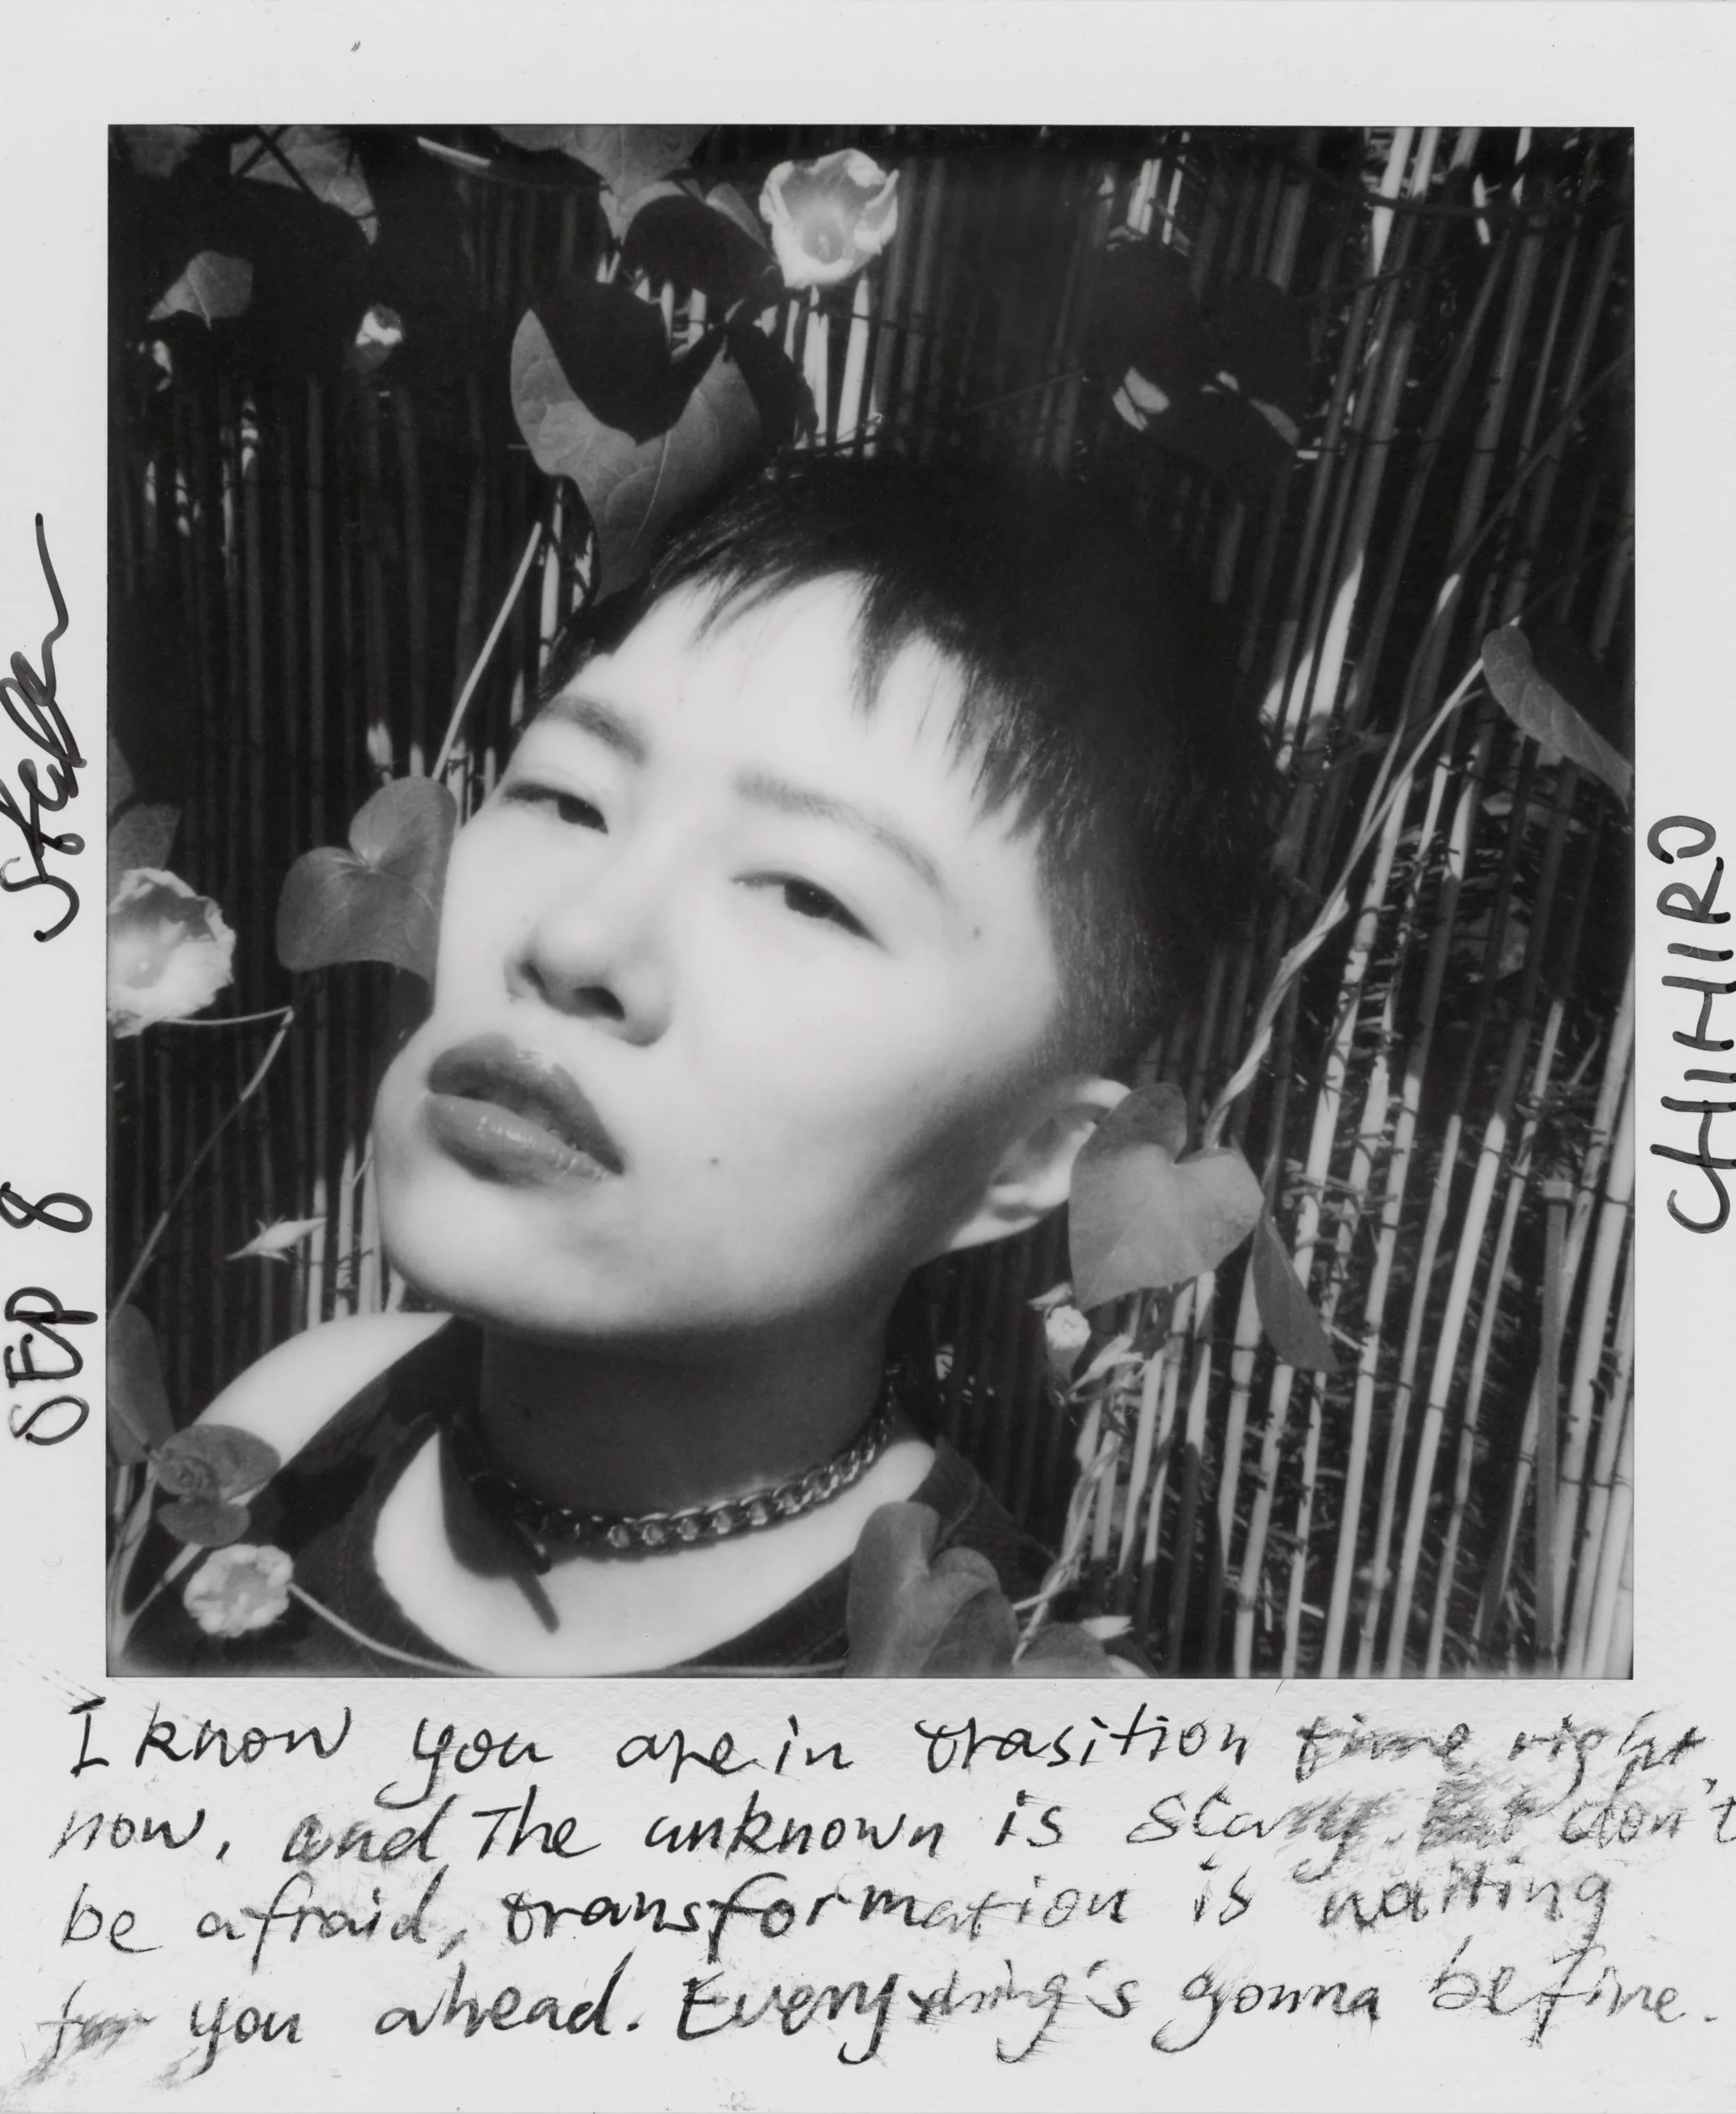 SEP 8
CHIHIRO
I know you are in trasition time right
now, and The unknown is scary. But don't
be afraid, transformation is waiting
for you ahead. Everything's gonna be fine.